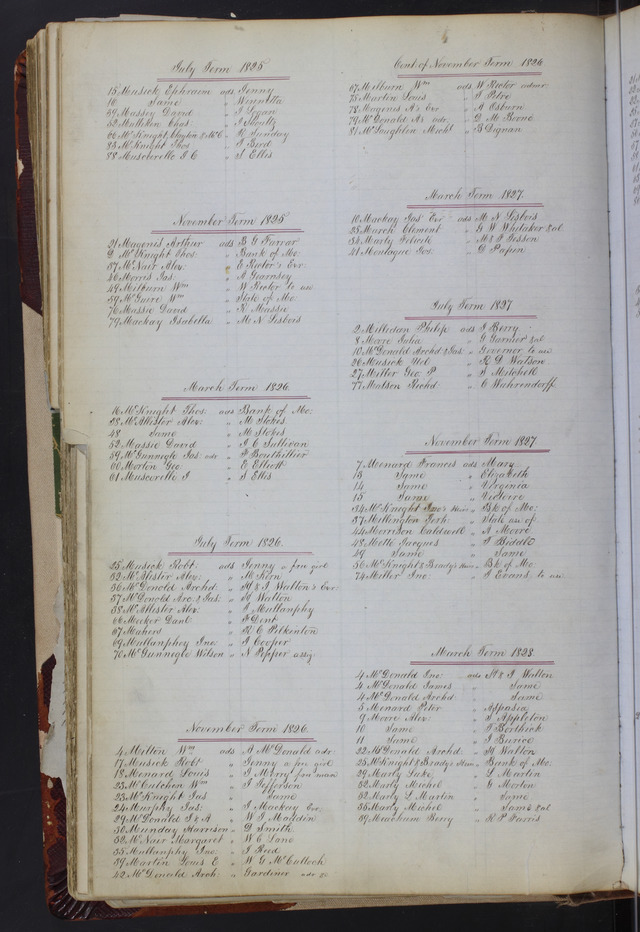 July Term 1825
15 Musick Ephraim ads Jenny
16 Same " Winetta
54 Massey David "
59 Mullikin Chas. " J Shultz
66 McKnight, " R Gunday
83 McKnight Thos " J Bird
88 Muscerolle J C " S Ellis
November Term 1825
21 Magenis Arthur ads B G Farrar
2 McKnight Thos. " Bank of Mo:
37 McNair Alex. " E Rector's Exr.
46 Morris Jas. " A Gearnsey
49 Milburn Wm " W Rector to use
59 McGuire Wm " State of Mo:
76 Massie David " R Massie
79 Mackay Isabella " M N Lisbois
March Term 1826.
16 McKnight Thos. ads Bank of Mo:
38 McAllister Alex. " M Stokes
48 Same " M Stokes
52 Massie David " J C Sullivan
59 McGunnegle Jas. adr " F Bouthillier
60 Morton Geo. " E Elliott
61 Muscerolle J " S Ellis
July Term 1826.
25 Musick Robt. ads Jenny a free girl
32 McAlister Alex. " M Kern
36 McDonald Archd. " H & J Walton's Exr.
37 McDonald Arc. & Jas. " H Walton
38 McAllister Alex. " J Mullanphy
66 Meeker Danl. " F Dent
67 Mahers " R C Pilkenton
69 Mullanphey Jno. " A Cooper
70 McGunnegle Wilson " N Pepper assig.
November Term 1826.
4 Milton Wm ads A McDonald adr.
17 Musick Robt " Jenny a fr girl
18 Menard Louis " J Merry free man
23 McCutchen Wm " T Jefferson
23 McKnight Jas " Same
24 Murphy Jas. " J Mackay Exr.
29 McDonald J & A " W J Maudin
30 Munday Harrison " D Smith
32 McNair Margaret " W C Lane
35 Mullanphy Jno. " J Reed
39 Martin Louis E " W G McCulloch
42 McDonald Arch. " Gardener adr &c
Cont. of November Term 1826
67 Milburn Wm ads W Rector admr.
75 Martin Louis " J Petre
78 Magenis A's Exr " A Osburn
79 McDonald A's adr. " D McBerne
81 McLaughlen Michl " B Dignan
March Term 1827.
10 Mackay Jas Exr ads M N Lisbois
28 March Clement " G W Whitaker &al
34 Marly Felicite " M & F Tesson
41 Montague Jos. " D Papin
July Term 1827
2 Milledian Philip ads J Berry
8 Moore Julia " G Garnier &al
10 McDonald Archd & Jas. " Governor to use
26 Musick Uel " R D Watson
27 Miller Geo. P " S Mitchell
77 Matson Richd. " C Wahrendorff
November Term 1827
7 Menard Francis ads Mary
13 Same " Elizabeth
14 Same " Virginia
15 Same " Victorre
34 McKnight Jno's Heirs " Bk of Mo:
37 Millington Jerh. " State use of
44 Morrison Caldwell " A Moore
48 Motte Jacques " T Biddle
49 Same " Same
56 McKnight & Brady's Heirs " Bk of Mo:
74 Miller Jno: " J Evans to use
March Term 1828.
4 McDonald Jno: ads H & J Walton
4 McDonald James " Same
4 McDonald Archd " Same
5 Menard Peter " Aspasia
9 Moore Alex. " S Appleton
10 Same " T Borthick
11 Same " J Burice
22 McDonald Archd. " H Walton
25 McKnight & Brady's Heirs " Bank of Mo:
29 Marly Luke " L Martin
32 Marly Michel " G Morton
32 Marly L Martin " Same
35 Marly Michel " Same &al
39 Meacham Berry " R P Farris